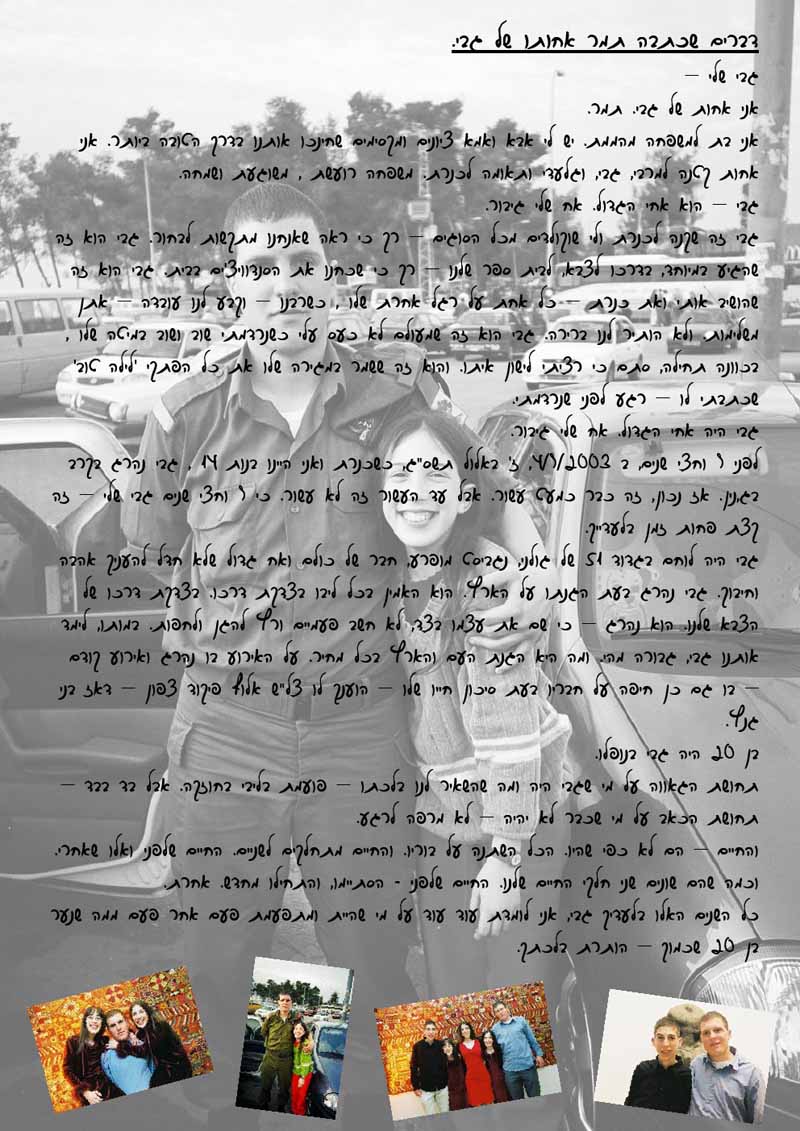 דברים שכתבה תמר אחותו של גבי.
גבי שלי –
אני אחות של גבי. תמר.
אני בת למשפחה מהממת. יש לי אבא ואמא ציונים ומקסימים שחינכו אותנו בדרך הטובה ביותר. אני
אחות קטנה למרבי, גבי, וגלעדי ותאומה לכנרת. משפחה רועשת , משוגעת ושמחה.
גבי – הוא אחי הגדול. אח שלי גיבור.
גבי זה שקנה לכנרת ולי שוקולדים מכל הסוגים – רק כי ראה שאנחנו מתקשות לבחור. גבי הוא זה
שהגיע במיוחד, בדרכו לצבא, לבית ספר שלנו – רק כי שכחנו את הסנדוויצ'ים בבית. גבי הוא זה
שהושיב אותי ואת כנרת – כל אחת על רגל אחרת שלו , כשרבנו – וקבע לנו עובדה – אתן
משלימות. ולא הותיר לנו ברירה. גבי הוא זה שמעולם לא כעס עלי כשנרדמתי שוב ושוב במיטה שלו ,
בכוונה תחילה, סתם כי רציתי לישון איתו. והוא זה ששמר במגירה שלו את כל הפתקי 'לילה טוב'
שכתבתי לו – רגע לפני שנרדמתי.
גבי היה אחי הגדול. אח שלי גיבור.
לפני 9 וחצי שנים, ב 4/9/2003, ז' באלול תשס"ג, כשכנרת ואני היינו בנות 14 , גבי נהרג בקרב
בג'נין. אז נכון, זה כבר כמעט עשור. אבל עד העשור זה לא עשור. כי 9 וחצי שנים גבי שלי – זה
קצת פחות זמן בלעדייך.
גבי היה לוחם בגדוד 51 של גולני, נגביסט מופרע, חבר של כולם ואח גדול שלא חדל להעניק אהבה
וחיבוק. גבי נהרג בעת הגנתו על הארץ. הוא האמין בכל ליבו בצדקת דרכו. בצדקת דרכו של
הצבא שלנו. הוא נהרג – כי שם את עצמו בצד, לא חשב פעמיים ורץ להגן ולחפות. במותו, לימד
אותנו גבי, גבורה מהי. ומה היא הגנת העם והארץ בכל מחיר. על האירוע בו נהרג ואירוע קודם
– בו גם כן חיפה על חבריו בעת סיכון חייו שלו – הוענק לו צל"ש אלוף פיקוד צפון – דאז בני
גנץ.
בן 20 היה גבי בנופלו.
תחושת הגאווה על מי שגבי היה ומה שהשאיר לנו בלכתו – פועמת בליבי בחוזקה. אבל בד בבד –
תחושת הכאב על מי שכבר לא יהיה – לא מרפה לרגע.
והחיים – הם לא כפי שהיו. הכל השתנה על בוריו. והחיים מתחלקים לשניים. החיים שלפני ואלו שאחרי.
וכמה שהם שונים שני חלקי החיים שלנו. החיים שלפני - הסתיימו, והתחילו מחדש. אחרת.
כל השנים האלו בלעדיך גבי, אני לומדת עוד ועוד על מי שהיית ומתפעמת פעם אחר פעם ממה שנער
בן 20 שכמוך – הותרת בלכתך.